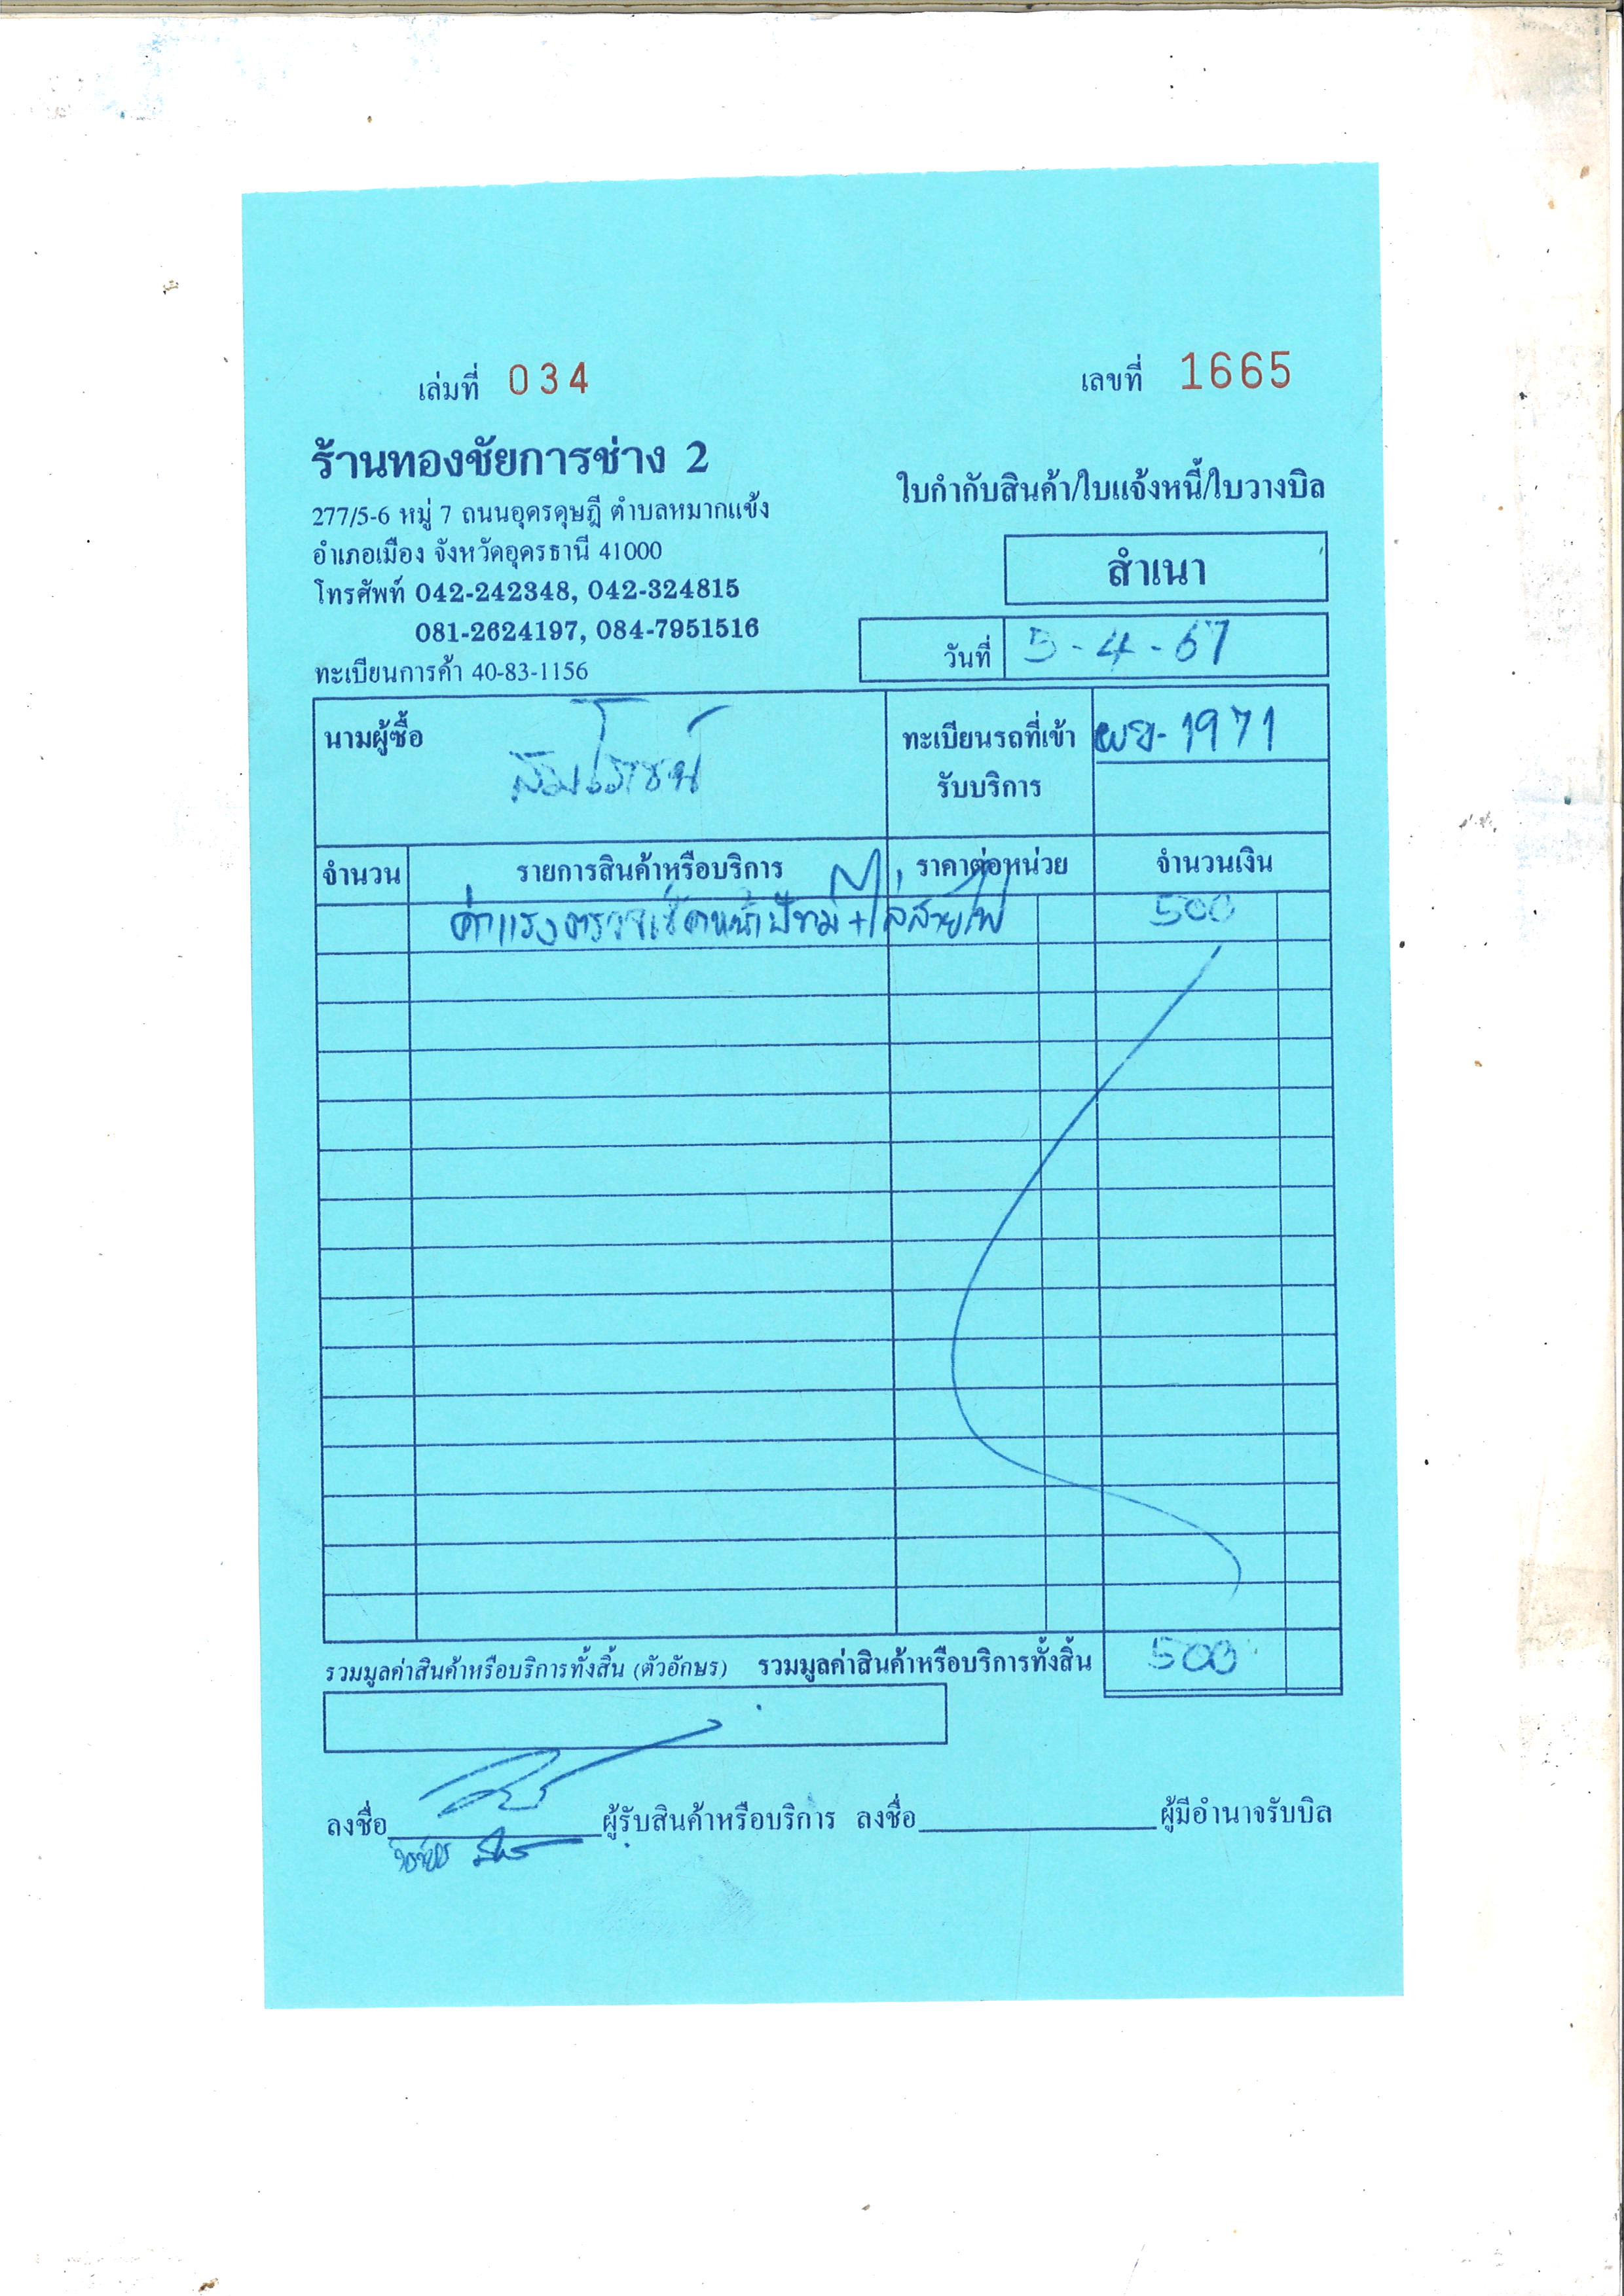 เล่มที่ 034
เลขที่ 1665
ร้านทองชัยการช่าง 2
277/5-6 หมู่ 7 ถนนอุดรดุษฎี ตำบลหมากแข้ง
อำเภอเมือง จังหวัดอุดรธานี 41000
โทรศัพท์ 042-242348, 042-324815
081-2624197, 084-7951516
ทะเบียนการค้า 40-83-1156
ใบกำกับสินค้า/ใบแจ้งหนี้/ใบวางบิล
สำเนา
วันที่ 5-4-67
นามผู้ซื้อ
ทะเบียนรถที่เข้า
รับบริการ
1971
จำนวน รายการสินค้าหรือบริการ ราคาต่อหน่วย จำนวนเงิน
ค่าแรงตรวจเช็คหน้าปัทม์ + ไล่สายไฟ 500
รวมมูลค่าสินค้าหรือบริการทั้งสิ้น (ตัวอักษร) รวมมูลค่าสินค้าหรือบริการทั้งสิ้น 500
ลงชื่อ ผู้รับสินค้าหรือบริการ ลงชื่อ ผู้มีอำนาจรับบิล